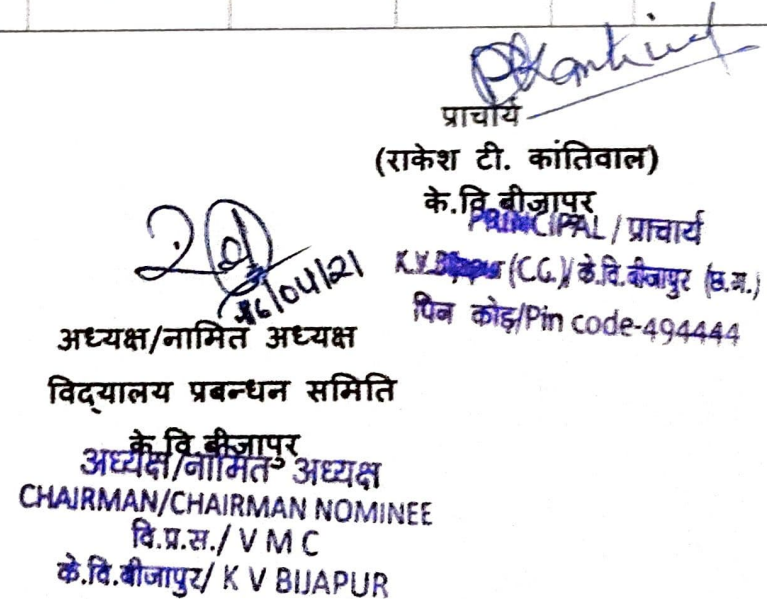 प्राचार्य
(राकेश टी. कांतिवाल)
के.वि.बीजापुर
PRINCIPAL / प्राचार्य
(C.G.)/ के.वि.बीजापुर (छ.ग.)
पिन कोड/Pin code-494444
16/04/21
अध्यक्ष/नामित अध्यक्ष
विद्यालय प्रबन्धन समिति
के.वि.बीजापुर
अध्यक्ष/नामित अध्यक्ष
CHAIRMAN/CHAIRMAN NOMINEE
वि.प्र.स./ V M C
के.वि.बीजापुर/ K V BIJAPUR